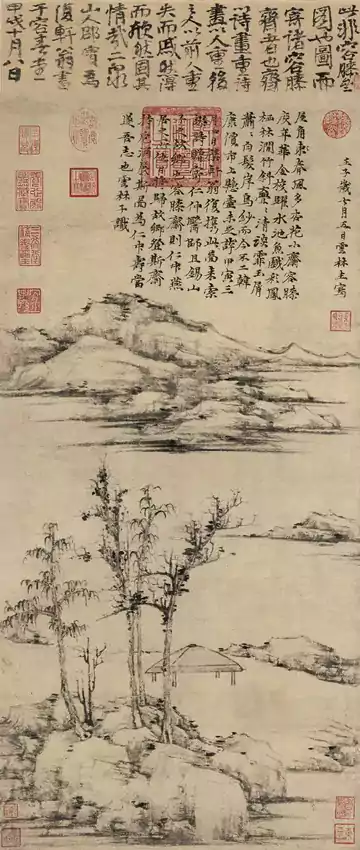 此非容膝
圖也圖而
寄諸容膝
齋者也齋
以詩畫重詩
畫以人重後
之人以前人重
失而戚然得
而欣然固其
情哉二泉
山人邵寶為
復軒翁書
于容春堂
甲戌十月八日
壬子歲七月五日雲林生寫
屋角春風多杏花小齋容膝
度年華金梭躍水池魚戲彩鳳
棲林澗竹斜亹亹清談霏玉屑
蕭蕭白髮岸烏紗而今不二韓
康價市上懸壺未足誇甲寅三
月四日檗軒翁復攜此圖來索
謬詩贈寄仁仲醫師且錫山
予之故鄉也容膝齋則仁仲燕
居之所他日將歸故鄉登斯齋
持卮酒展斯圖為仁仲壽當
遂吾志也雲林子識